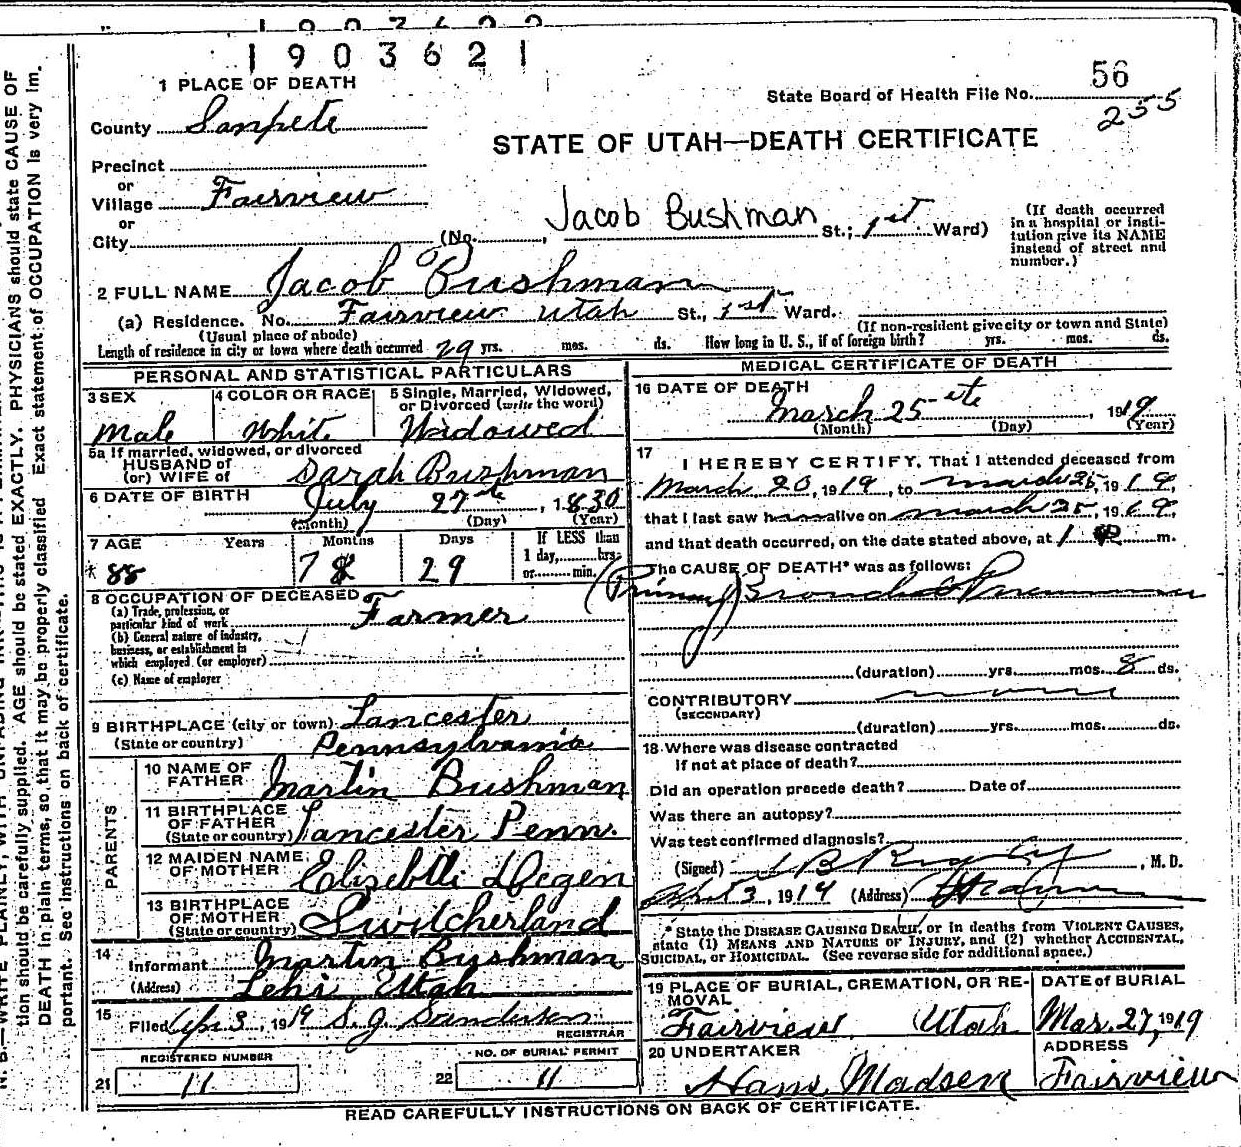 1903621
1 PLACE OF DEATH
56
State Board of Health File No.
255
County Sanpete
STATE OF UTAH—DEATH CERTIFICATE
Precinct
or
Village Fairview
or
City (No. , Jacob Bushman St.; 1st Ward)
(If death occurred in a hospital or insti-
tution give its NAME
instead of street and
number.)
2 FULL NAME Jacob Bushman
(a) Residence. No. Fairview Utah St., 1st Ward.
(Usual place of abode) (If non-resident give city or town and State)
Length of residence in city or town where death occurred 29 yrs. mos. ds. How long in U. S., if of foreign birth? yrs. mos. ds.
PERSONAL AND STATISTICAL PARTICULARS
3 SEX
Male
4 COLOR OR RACE
White
5 Single, Married, Widowed,
or Divorced (write the word)
Widowed
5a If married, widowed, or divorced
HUSBAND of
(or) WIFE of Sarah Bushman
6 DATE OF BIRTH July 27 , 1830
(Month) (Day) (Year)
7 AGE Years Months Days If LESS than
1 day, hrs.
or min.
* 88 7 29
8 OCCUPATION OF DECEASED
(a) Trade, profession, or
particular kind of work Farmer
(b) General nature of industry,
business, or establishment in
which employed (or employer)
(c) Name of employer
9 BIRTHPLACE (city or town) Lancester
(State or country) Pennsylvania
PARENTS
10 NAME OF
FATHER Martin Bushman
11 BIRTHPLACE
OF FATHER
(State or country) Lancester Penn.
12 MAIDEN NAME
OF MOTHER Degen
13 BIRTHPLACE
OF MOTHER
(State or country) Switcherland
14
Informant Martin Bushman
(Address) Lehi Utah
15
Filed Apr 3, 1919 S. J. Sanderson
REGISTRAR
REGISTERED NUMBER
21 11
NO. OF BURIAL PERMIT
22 11
MEDICAL CERTIFICATE OF DEATH
16 DATE OF DEATH
March 25 , 1919
(Month) (Day) (Year)
17
I HEREBY CERTIFY, That I attended deceased from
March 20, 1919, to March 25, 1919
that I last saw h alive on March 25, 1919
and that death occurred, on the date stated above, at 1 m.
The CAUSE OF DEATH* was as follows:
(Primary)
(duration) yrs. mos. 8 ds.
CONTRIBUTORY none
(SECONDARY)
(duration) yrs. mos. ds.
18 Where was disease contracted
If not at place of death?
Did an operation precede death? Date of
Was there an autopsy?
Was test confirmed diagnosis?
(Signed) , M. D.
April 3, 1919 (Address)
* State the DISEASE CAUSING DEATH, or in deaths from VIOLENT CAUSES,
state (1) MEANS AND NATURE OF INJURY, and (2) whether ACCIDENTAL,
SUICIDAL, or HOMICIDAL. (See reverse side for additional space.)
19 PLACE OF BURIAL, CREMATION, OR RE-
MOVAL
Fairview Utah
DATE of BURIAL
Mar. 27, 1919
20 UNDERTAKER
Hans Madsen
ADDRESS
Fairview
READ CAREFULLY INSTRUCTIONS ON BACK OF CERTIFICATE.
tion should be carefully supplied. AGE should be stated EXACTLY. PHYSICIANS should state CAUSE OF
DEATH in plain terms, so that it may be properly classified. Exact statement of OCCUPATION is very im-
portant. See instructions on back of certificate.